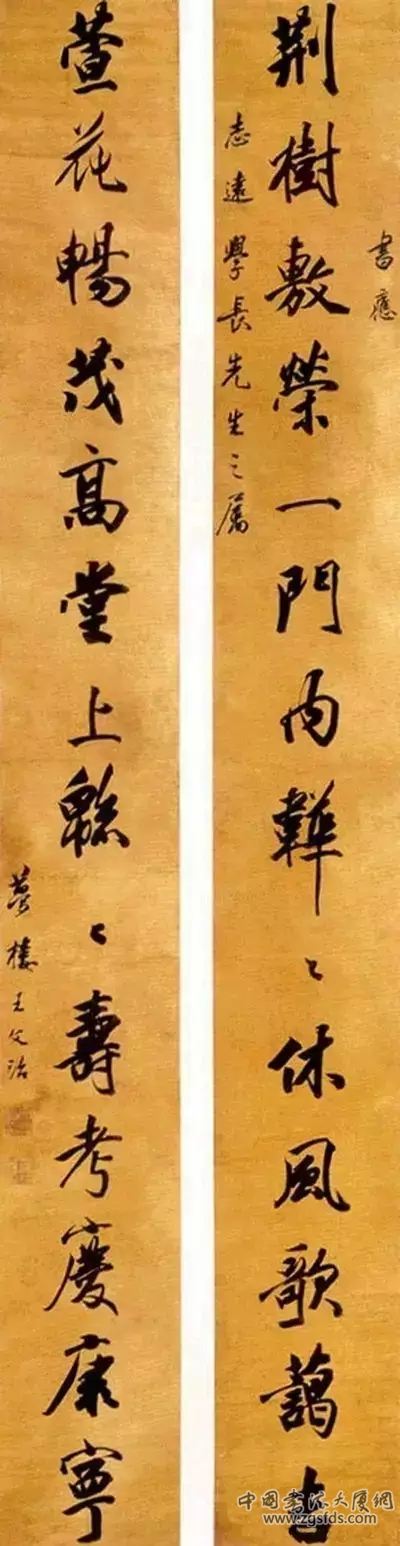 書應
荆樹敷榮一門内韡々休風歌藹吉
志遠學長先生之屬
萱花暢茂高堂上緜々壽考慶康寧
夢樓王文治
中國書法大厦網
www.zgsfds.com